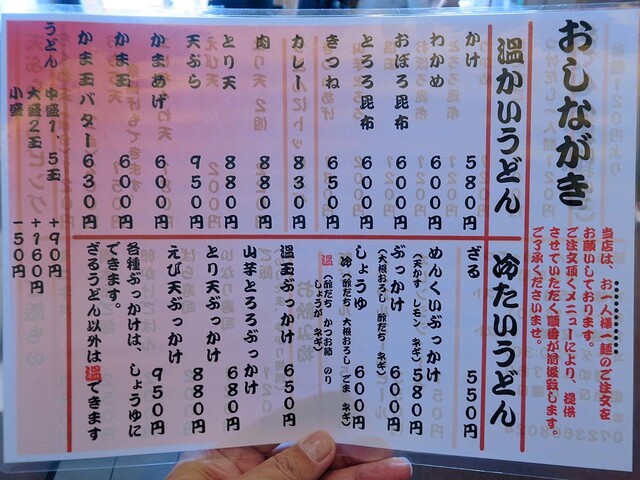 おしながき
当店は、お一人様一麺のご注文を
お願いしております。
ご注文頂くメニューにより、提供
させていただく順番が前後致します。
ご了承くださいませ。
温かいうどん
かけ 580円
わかめ 600円
おぼろ昆布 600円
とろろ昆布 600円
きつね 650円
カレー 830円
肉 880円
とり天 880円
天ぷら 950円
かまあげ 600円
かま玉 600円
かま玉バター 630円
うどん 中盛1.5玉 +90円
大盛2玉 +160円
小盛 -50円
冷たいうどん
ざる 550円
めんくいぶっかけ 580円
(天かす レモン ネギ)
ぶっかけ 600円
(大根おろし 酢だち ネギ)
しょうゆ 600円
冷 (酢だち 大根おろし ごま ネギ)
温 (酢だち かつお節 のり
しょうが ネギ)
温玉ぶっかけ 650円
山芋とろろぶっかけ 680円
とり天ぶっかけ 880円
えび天ぶっかけ 950円
各種ぶっかけは、しょうゆに
できます。
ざるうどん以外は温できます